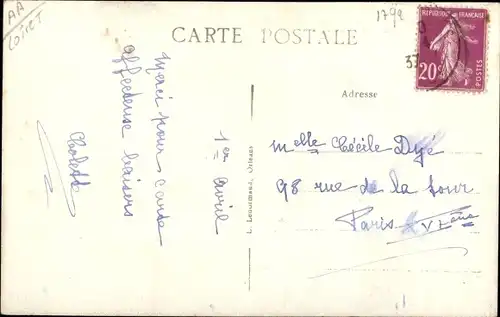 AA
LOIRET
1792
CARTE POSTALE
RÉPUBLIQUE FRANÇAISE
20c
POSTES
37
Adresse
Merci pour carte
affectueuse baisers
Colette
1er avril
Melle Cécile Dyé
98 rue de la tour
Paris XVIème